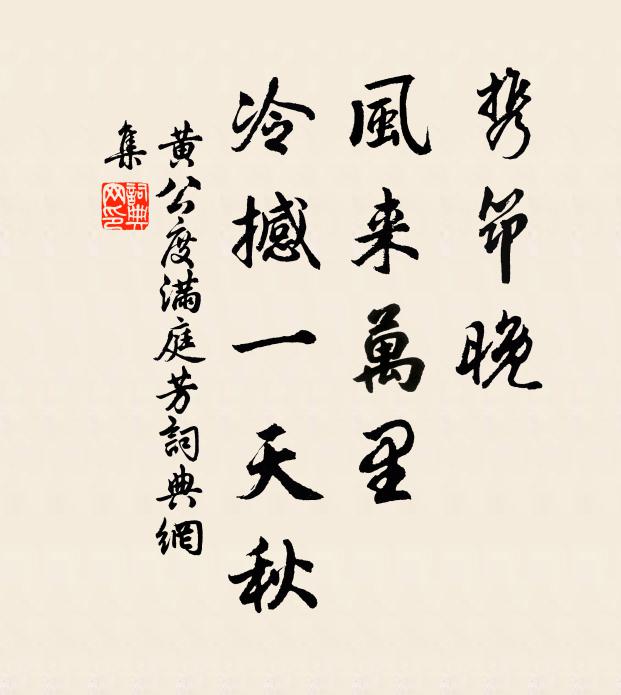 携筇晚
風来萬里
冷撼一天秋
黄公度滿庭芳詞典網
集
詞典
网印